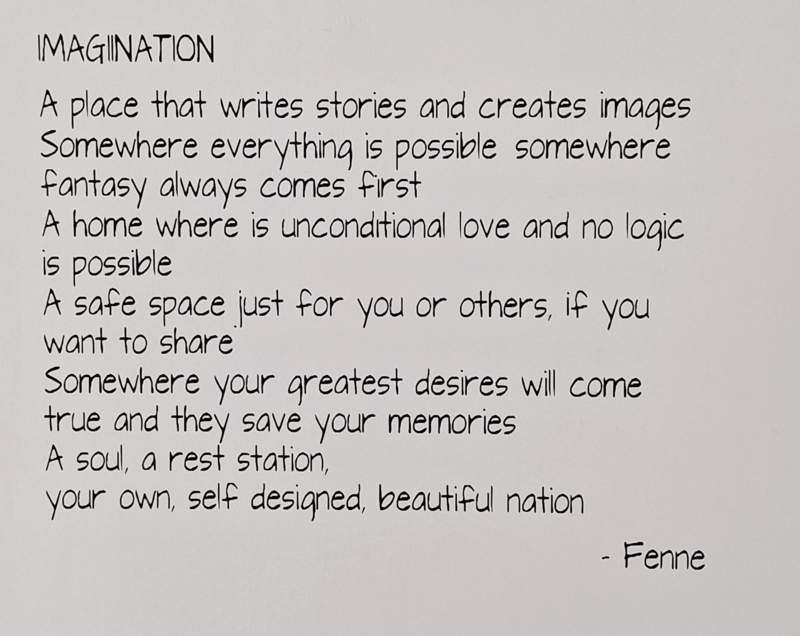 IMAGIINATION
A place that writes stories and creates images
Somewhere everything is possible somewhere
fantasy always comes first
A home where is unconditional love and no logic
is possible
A safe space just for you or others, if you
want to share
Somewhere your greatest desires will come
true and they save your memories
A soul, a rest station,
your own, self designed, beautiful nation
- Fenne